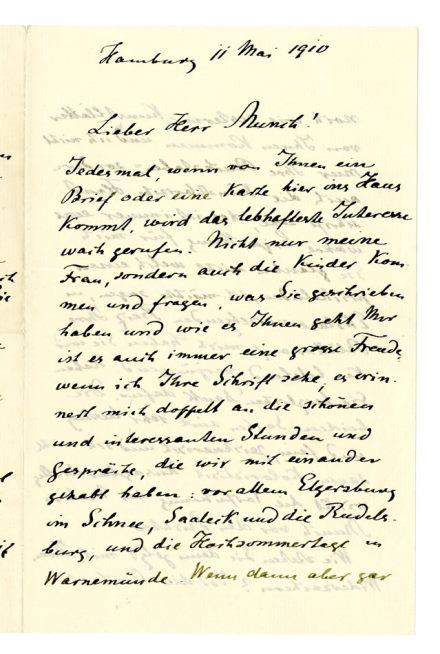 Hamburg 11 Mai 1910
Lieber Herr Munch!
Jedesmal, wenn von Ihnen ein
Brief oder eine Karte hier ins Haus
kommt, wird das lebhafteste Interesse
wach gerufen. Nicht nur meine
Frau, sondern auch die Kinder kom-
men und fragen, was Sie geschrieben
haben und wie es Ihnen geht. Mir
ist es auch immer eine grosse Freude,
wenn ich Ihre Schrift sehe, es erin-
nert mich doppelt an die schönen
und interessanten Stunden und
Gespräche, die wir mit einander
gehabt haben: vor allem Elgersburg
im Schnee, Saaleck und die Rudels-
burg, und die Hochsommertage in
Warnemünde. Wenn dann aber gar